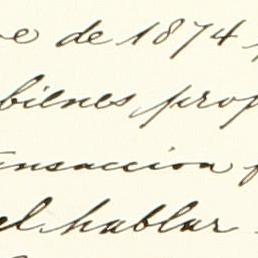 e de 1874
bienes prop
ansaccion
el hablar